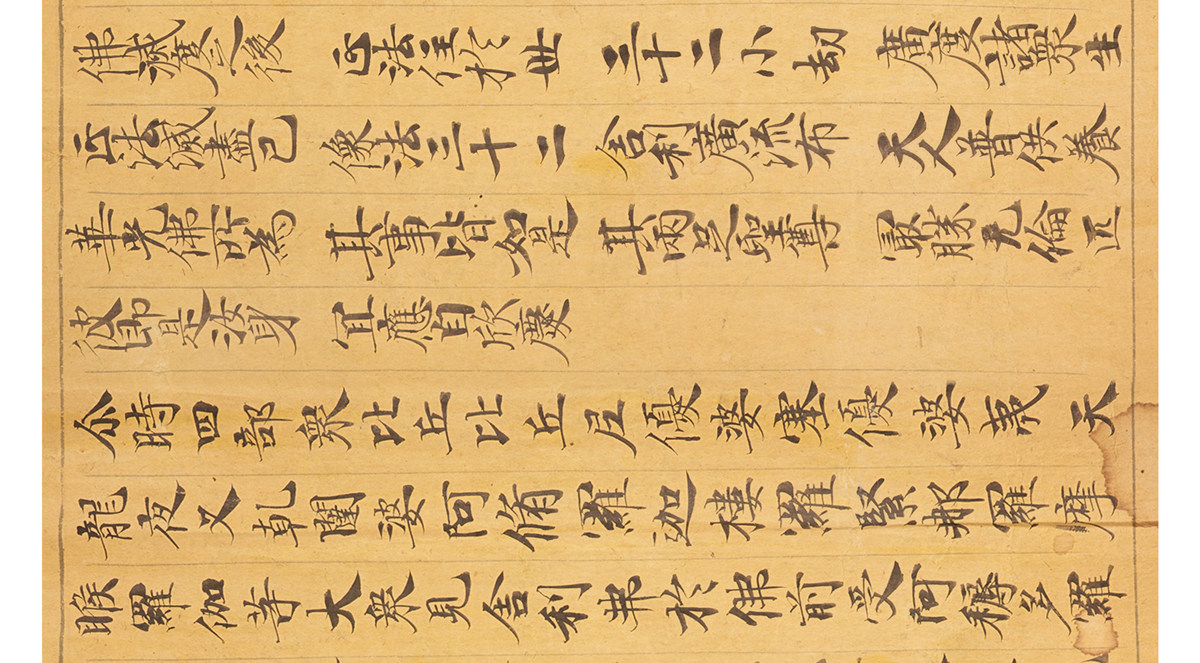 佛滅度之後 正法住於世 三十二小劫 廣度諸眾生
正法滅盡已 像法三十二 舍利廣流布 天人普供養
華光佛所為 其事皆如是 其兩足聖尊 最勝无倫匹
彼即是汝身 宜應自欣慶
尒時四部眾比丘比丘尼優婆塞優婆夷天
龍夜叉乹闥婆阿脩羅迦樓羅緊那羅摩
睺羅伽等大眾見舍利弗於佛前受阿耨多羅